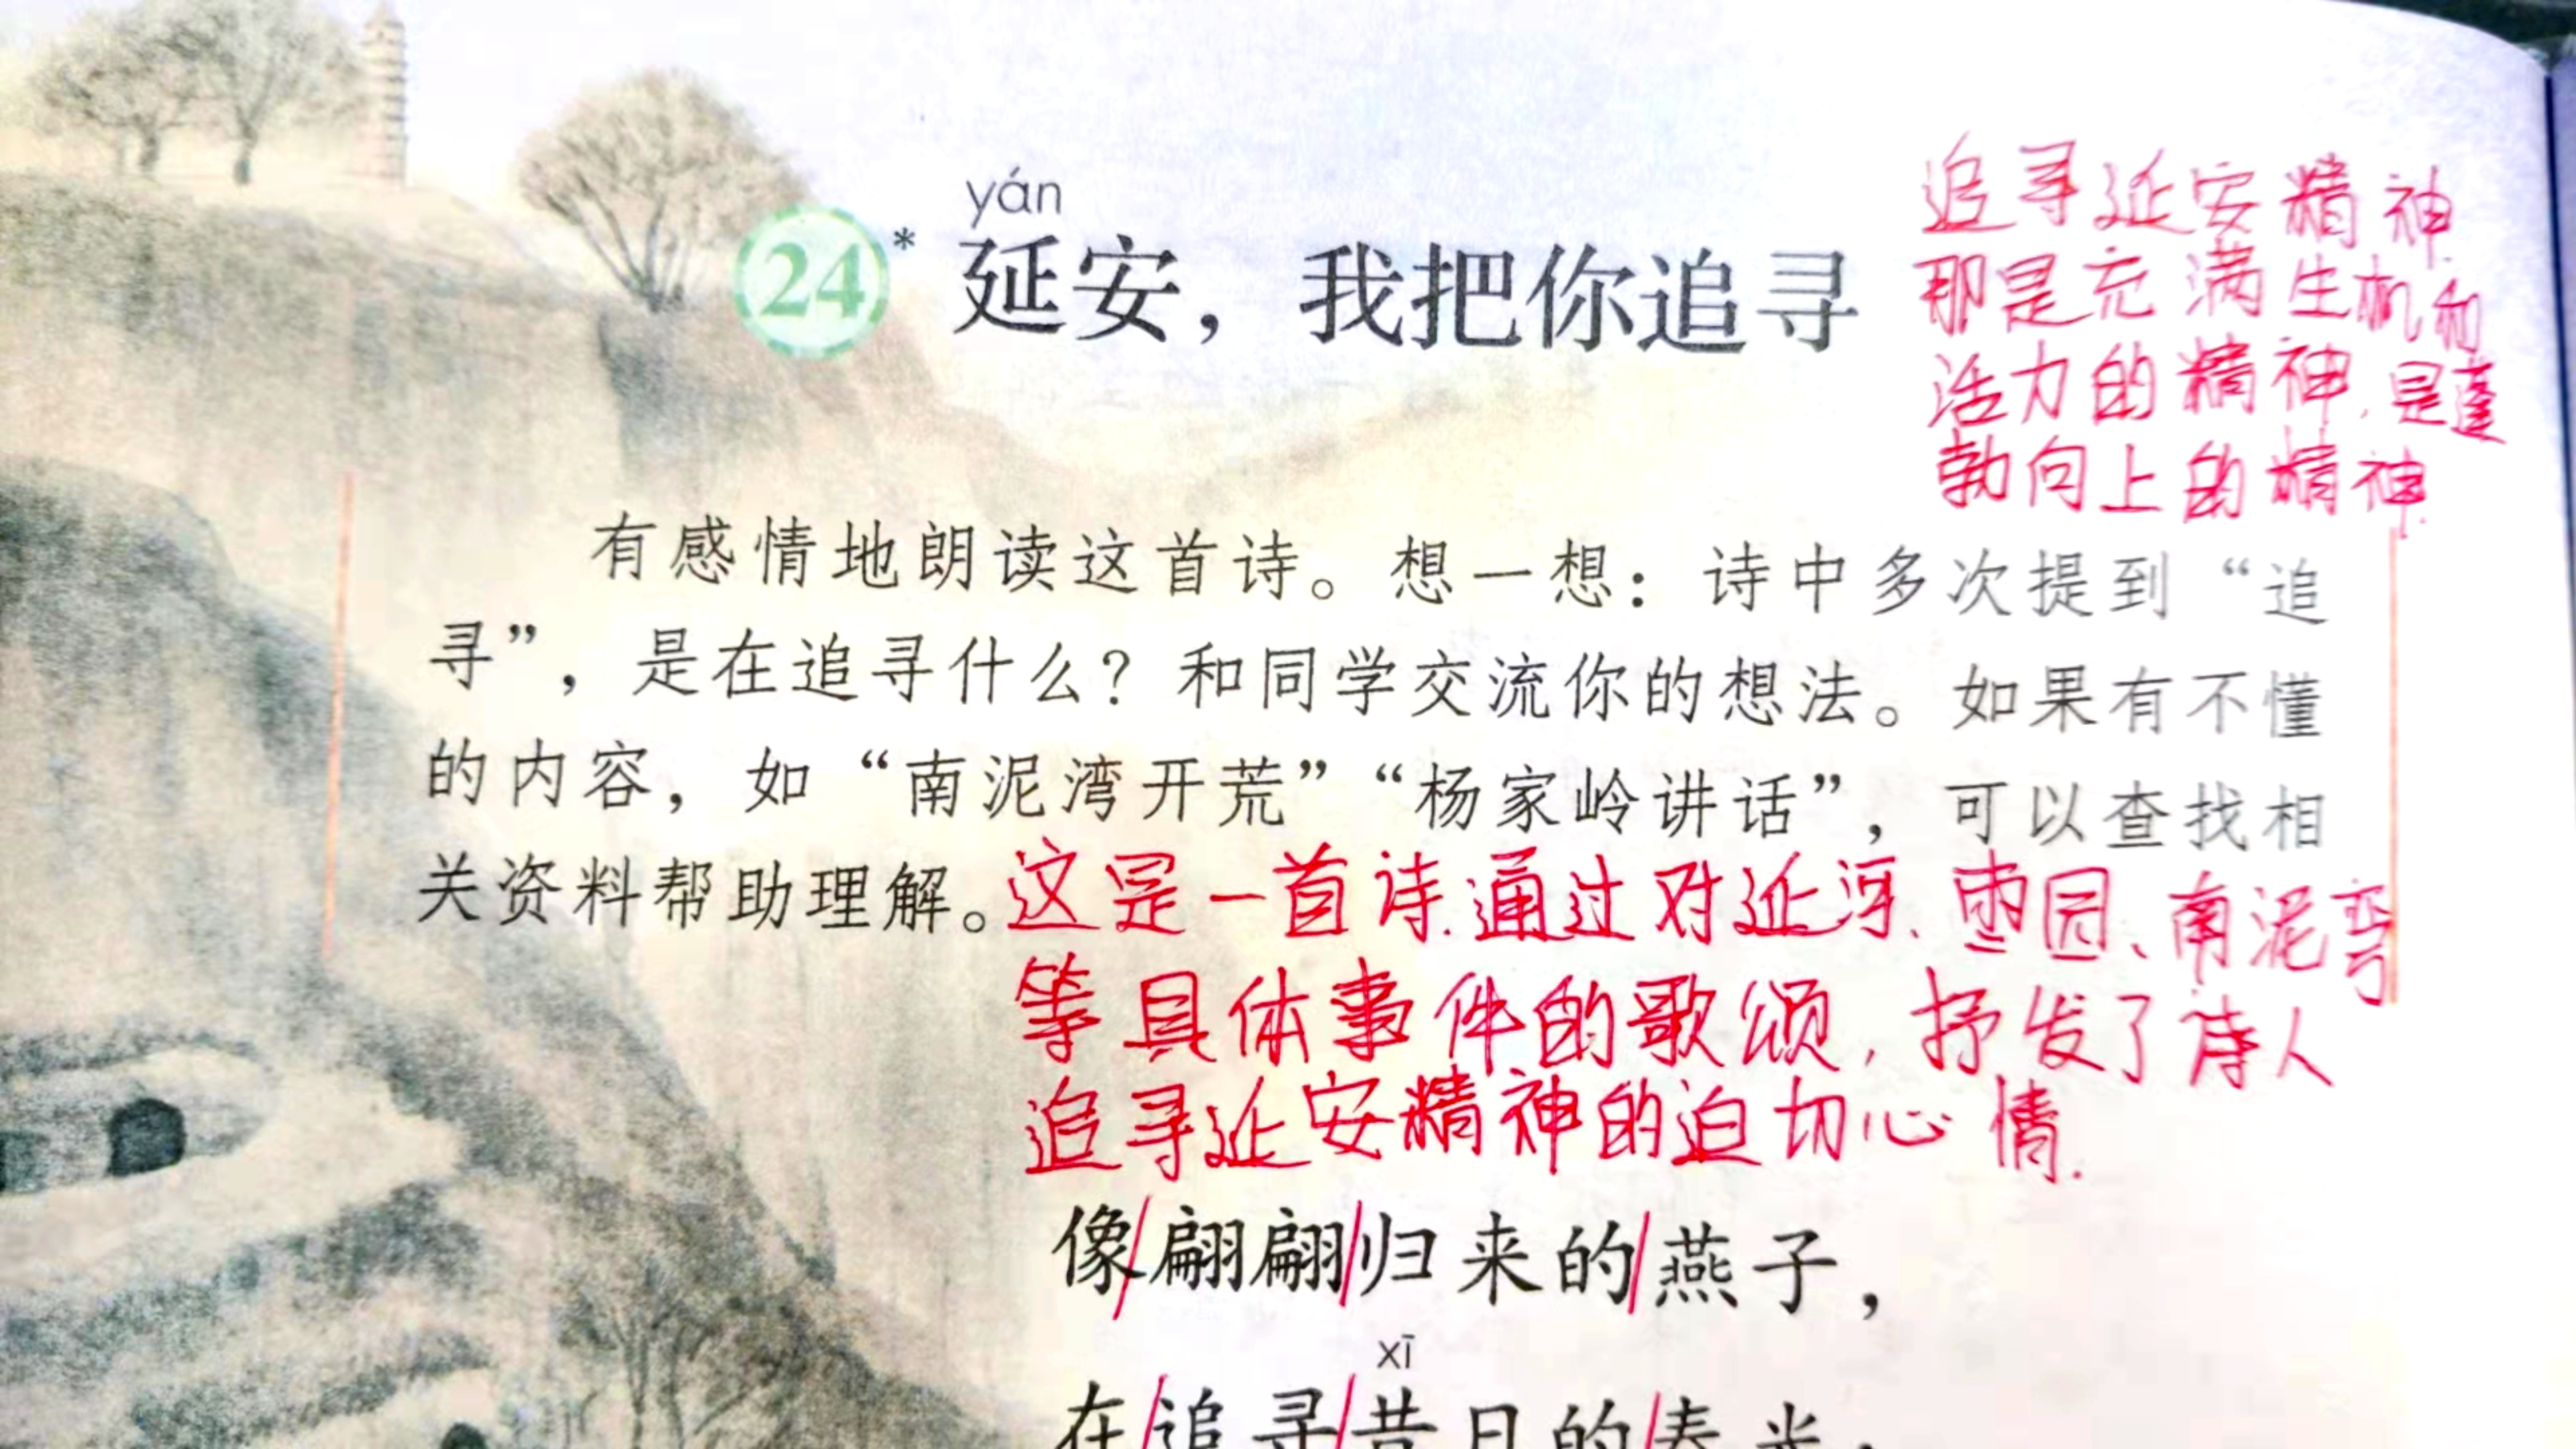 yán
24* 延安，我把你追寻
追寻延安精神.
那是充满生机和
活力的精神，是蓬
勃向上的精神.
有感情地朗读这首诗。想一想：诗中多次提到“追
寻”，是在追寻什么？和同学交流你的想法。如果有不懂
的内容，如“南泥湾开荒”“杨家岭讲话”，可以查找相
关资料帮助理解。
这是一首诗.通过对延河、枣园、南泥弯
等具体事件的歌颂，抒发了诗人
追寻延安精神的迫切心情.
像/翩翩/归来的/燕子，
xī
在/追寻/昔日的/春光；